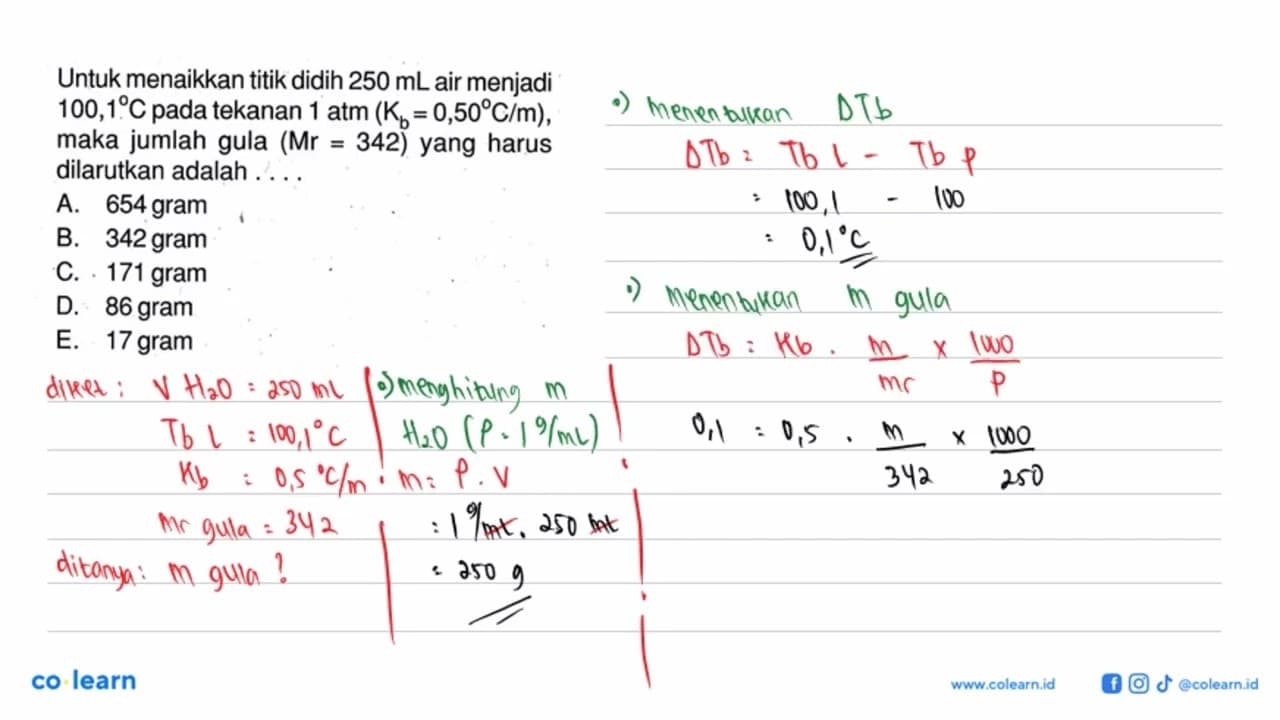 Untuk menaikkan titik didih 250 mL air menjadi
100,1°C pada tekanan 1 atm (K_b = 0,50°C/m),
maka jumlah gula (Mr = 342) yang harus
dilarutkan adalah . . . .
A. 654 gram
B. 342 gram
C. 171 gram
D. 86 gram
E. 17 gram
diket : V H₂O = 250 mL
Tb l = 100,1°C
Kb = 0,5 °C/m
Mr gula = 342
ditanya : m gula ?
•) menghitung m
H₂O (ρ = 1 g/mL)
m = ρ . V
= 1 g/mL . 250 mL
= 250 g
•) menentukan ΔTb
ΔTb = Tb l - Tb p
= 100,1 - 100
= 0,1°C
•) menentukan m gula
ΔTb = Kb . m/mr x 1000/p
0,1 = 0,5 . m/342 x 1000/250
co·learn
www.colearn.id
@colearn.id